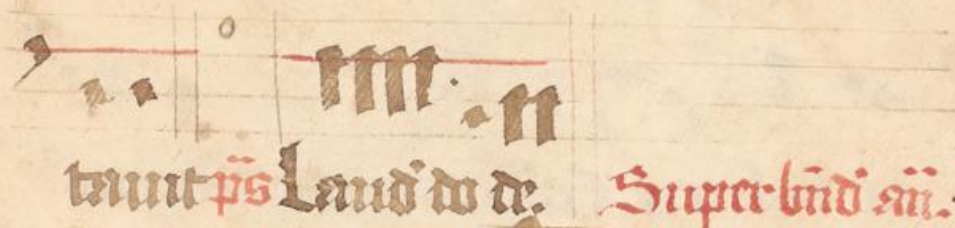 tauit p̄s Laud̄ do de. Super bn̄d̄ an̄.